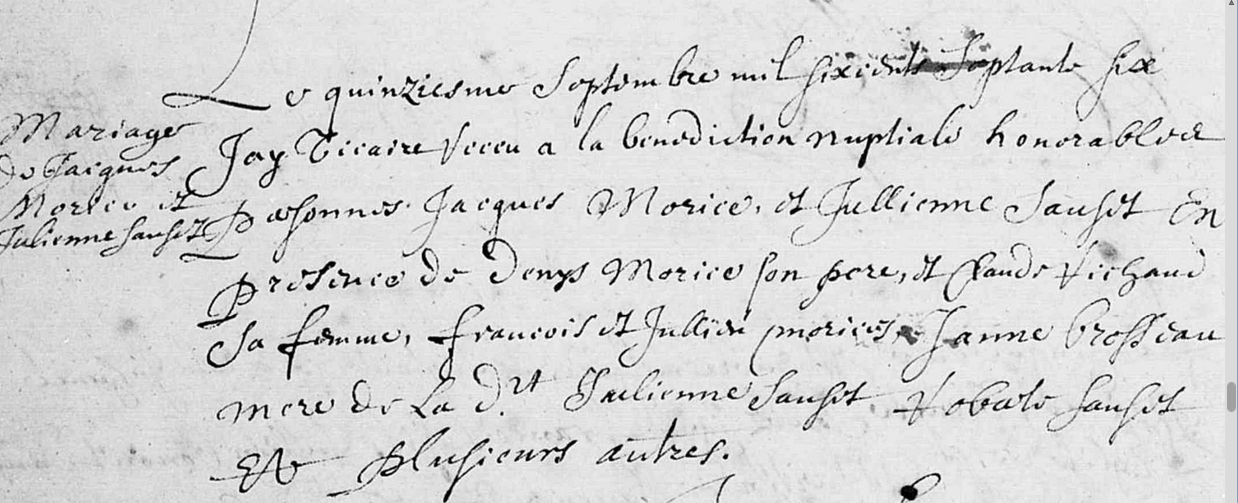 Mariage
de Jaiques
Morice et
Julienne Sauset
Le quinziesme Septembre mil sixcents Septante six
Jay Vicaire receu a la benediction nuptiale honorables
personnes Jacques Morice, et Jullienne Sauset En
presence de Denys Morice son pere, et Claude Richaud
Sa femme, francois et Jullien morices, Janne brosseau
mere de La d.te Julienne Sauset Robate Sauset
Et plusieurs autres.